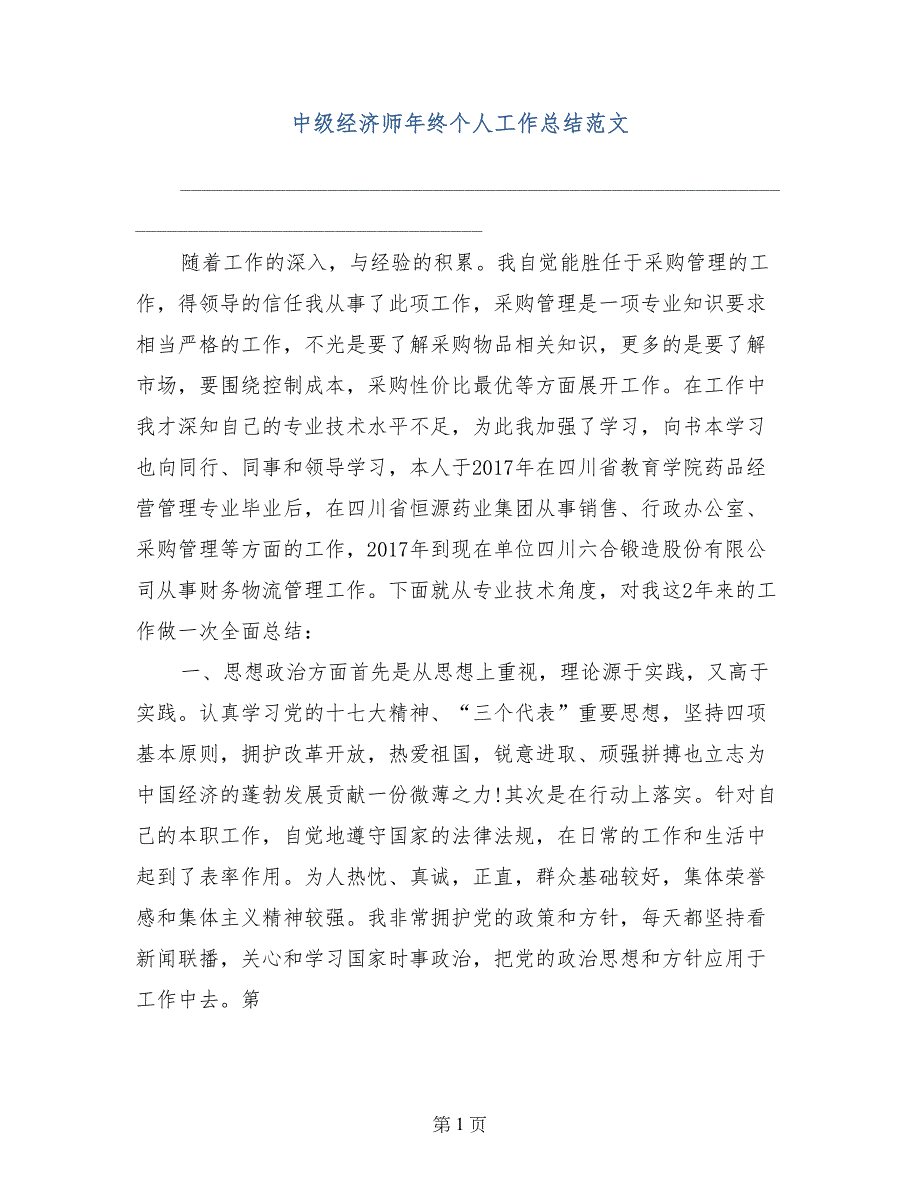 中级经济师年终个人工作总结范文
随着工作的深入，与经验的积累。我自觉能胜任于采购管理的工
作，得领导的信任我从事了此项工作，采购管理是一项专业知识要求
相当严格的工作，不光是要了解采购物品相关知识，更多的是要了解
市场，要围绕控制成本，采购性价比最优等方面展开工作。在工作中
我才深知自己的专业技术水平不足，为此我加强了学习，向书本学习
也向同行、同事和领导学习，本人于2017年在四川省教育学院药品经
营管理专业毕业后，在四川省恒源药业集团从事销售、行政办公室、
采购管理等方面的工作，2017年到现在单位四川六合锻造股份有限公
司从事财务物流管理工作。下面就从专业技术角度，对我这2年来的工
作做一次全面总结：
一、思想政治方面首先是从思想上重视，理论源于实践，又高于
实践。认真学习党的十七大精神、“三个代表”重要思想，坚持四项
基本原则，拥护改革开放，热爱祖国，锐意进取、顽强拼搏也立志为
中国经济的蓬勃发展贡献一份微薄之力!其次是在行动上落实。针对自
己的本职工作，自觉地遵守国家的法律法规，在日常的工作和生活中
起到了表率作用。为人热忱、真诚，正直，群众基础较好，集体荣誉
感和集体主义精神较强。我非常拥护党的政策和方针，每天都坚持看
新闻联播，关心和学习国家时事政治，把党的政治思想和方针应用于
工作中去。第
第 1 页